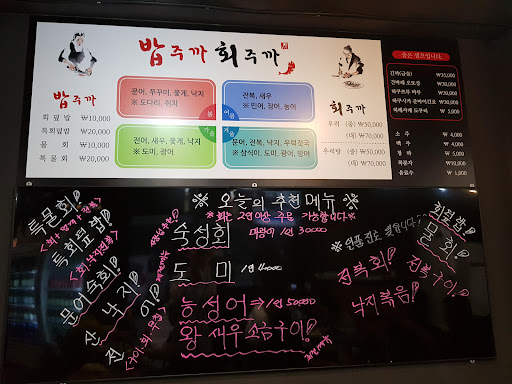 밥주까 회주까
밥주까
회 덮 밥 ₩10,000
특회덮밥 ₩20,000
물 회 ₩10,000
특 물 회 ₩20,000
문어, 쭈꾸미, 꽃게, 낙지
※ 도다리, 쥐치
봄
전복, 새우
※ 민어, 광어, 농어
여름
전어, 새우, 꽃게, 낙지
※ 도미, 광어
가을
문어, 전복, 낙지, 우럭젓국
※ 삼식이, 도미, 광어, 방어
겨울
회주까
우럭 (중) ₩50,000
(대) ₩70,000
우럭탕 (중) ₩50,000
(대) ₩70,000
술은 셀프입니다.
₩35,000
₩30,000
₩30,000
₩30,000
₩ 5,000
소 주 ₩ 4,000
맥 주 ₩ 4,000
청 하 ₩ 5,000
복분자 ₩10,000
음료수 ₩ 1,000
※ 오늘의 추천메뉴 ※
※회는 2인이상 주문 가능합니다※
특물회!
특회덮밥!
문어숙회!
산 낙지!
전 어!
<구이·회·무침>
숙성회
막광어 1인 30000
도 미 1인 40000
농성어 ⇒ 1인 50000
왕 새우 소금구이!
회덮밥!
물회!
전복회!
전복구이!
낙지볶음!